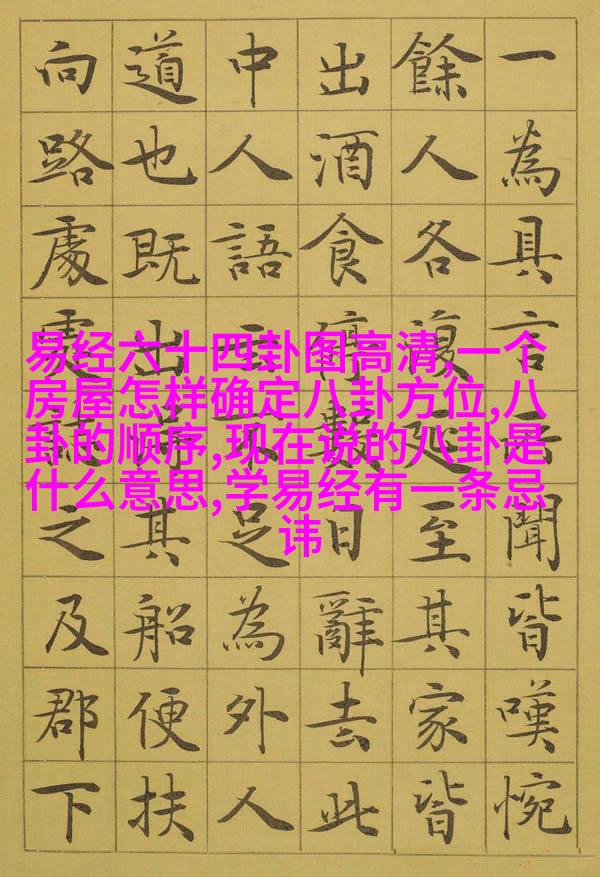 易经六十四卦图高清,一个
房屋怎样确定八卦方位,八
卦的顺序,现在说的八卦是
什么意思,学易经有一条忌
讳
一為具言所聞皆嘆惋
餘人各復延至其家皆
出酒食停數日辭去此
中人語云不足為外人
道也既出得其船便扶
向路處處誌之及郡下